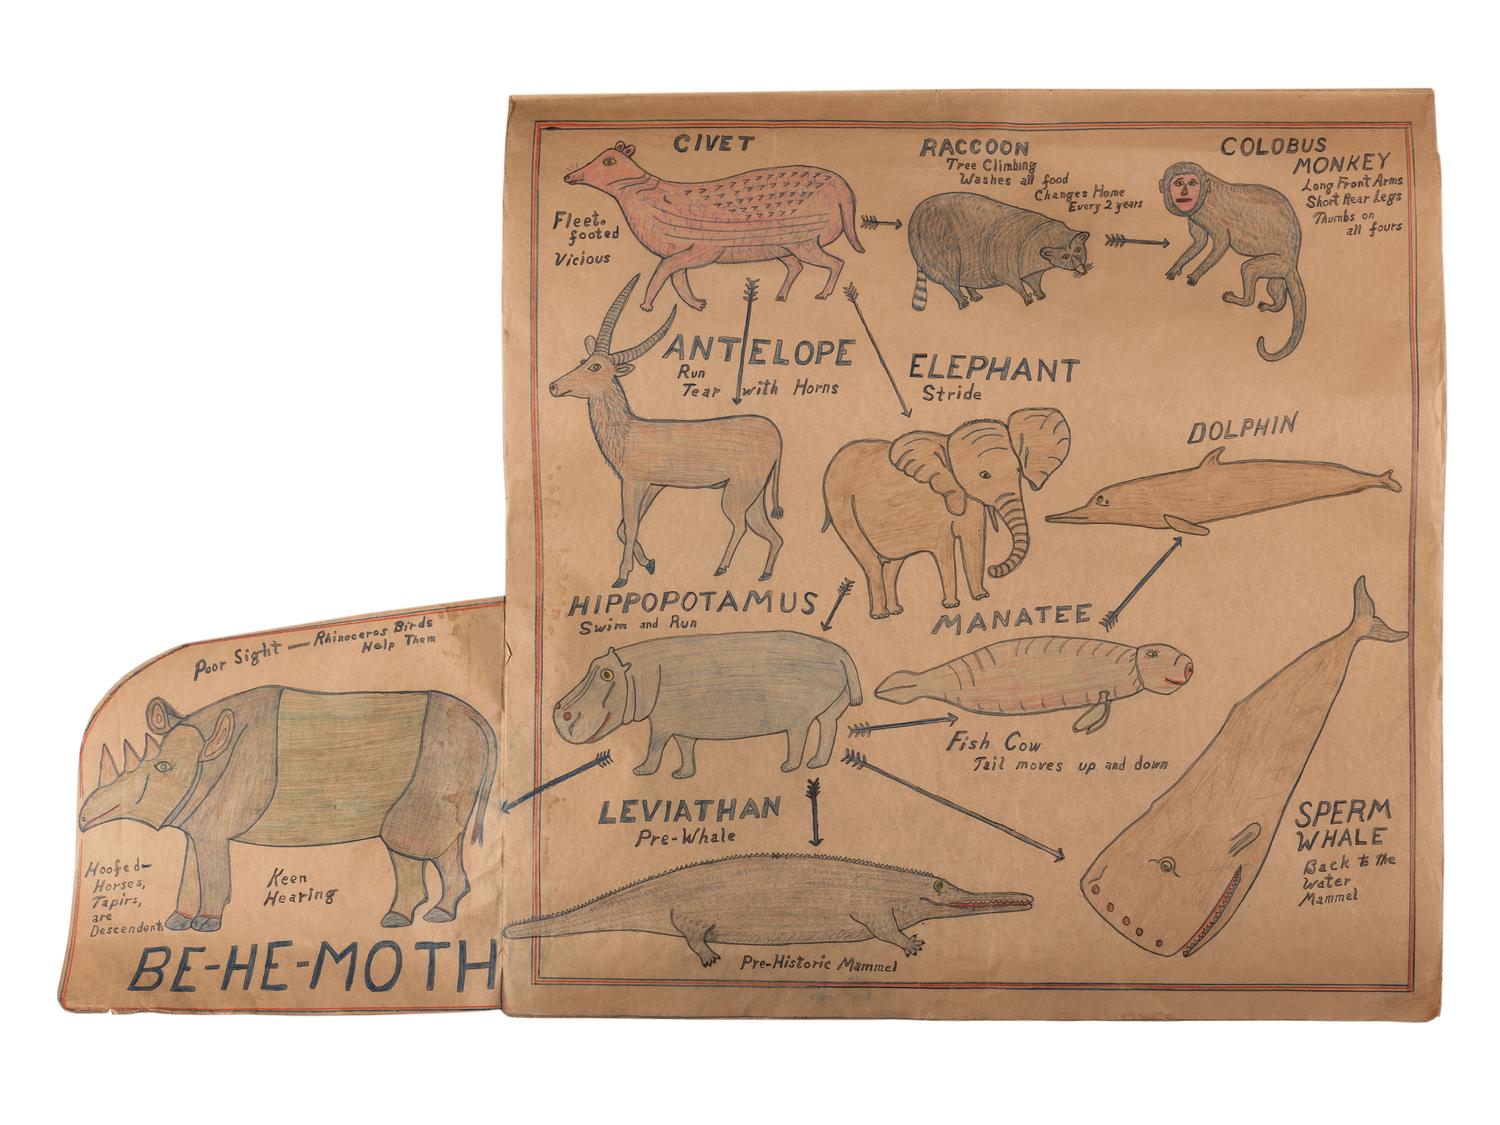 CIVET
Fleet-
footed
Vicious
RACCOON
Tree Climbing
Washes all food
Changes Home
Every 2 years
COLOBUS
MONKEY
Long Front Arms
Short Rear Legs
Thumbs on
all fours
ANTELOPE
Run
Tear with Horns
ELEPHANT
Stride
DOLPHIN
HIPPOPOTAMUS
Swim and Run
MANATEE
Fish Cow
Tail moves up and down
LEVIATHAN
Pre-Whale
Pre-Historic Mammel
SPERM
WHALE
Back to the
Water
Mammel
Poor Sight — Rhinoceros Birds
Help Them
Hoofed—
Horses,
Tapirs,
are
Descendents
Keen
Hearing
BE-HE-MOTH